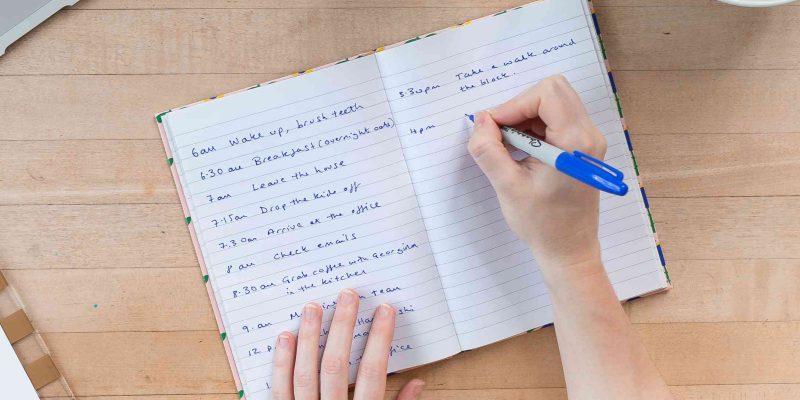 6am Wake up, brush teeth
6.30 am Breakfast (overnight oats)
7am Leave the house
7.15am Drop the kids off
7.30am Arrive at the office
8 am Check emails
8.30 am Grab coffee with Georgina
in the kitchen
9. am team
12
office
3.30pm Take a walk around
the block.
4pm